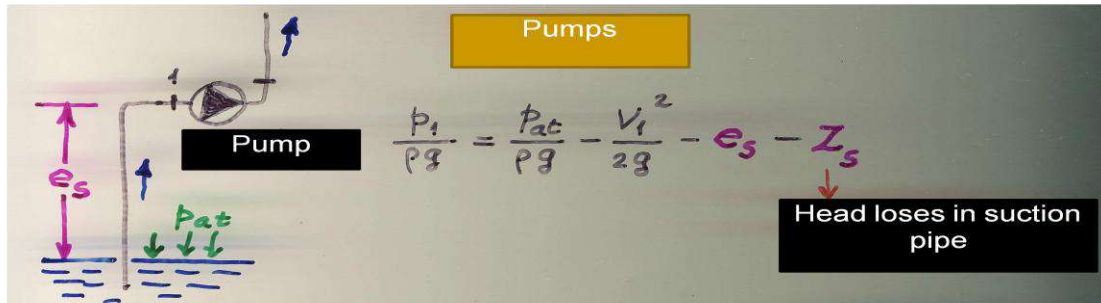 Pumps
1
Pump
p₁/ρg = pat/ρg - V₁²/2g - es - Zs
es
pat
Head loses in suction
pipe